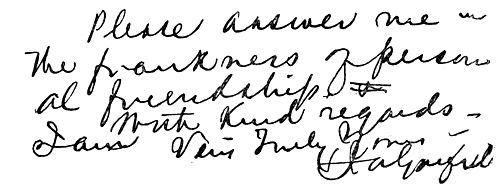 Please answer me in
the frankness of person
al friendship.
With kind regards -
I am Very Truly Yours -
JAGarfield